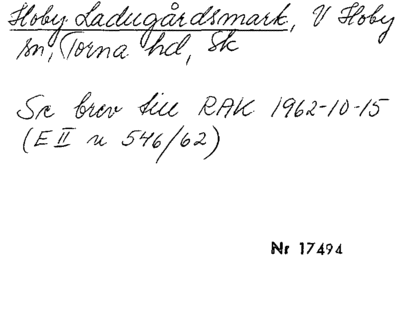 Hoby Ladugårdsmark, V Hoby
sn, Torna hd, Sk
Se brev till RAK 1962-10-15
(E II n 546/62)
Nr 17494